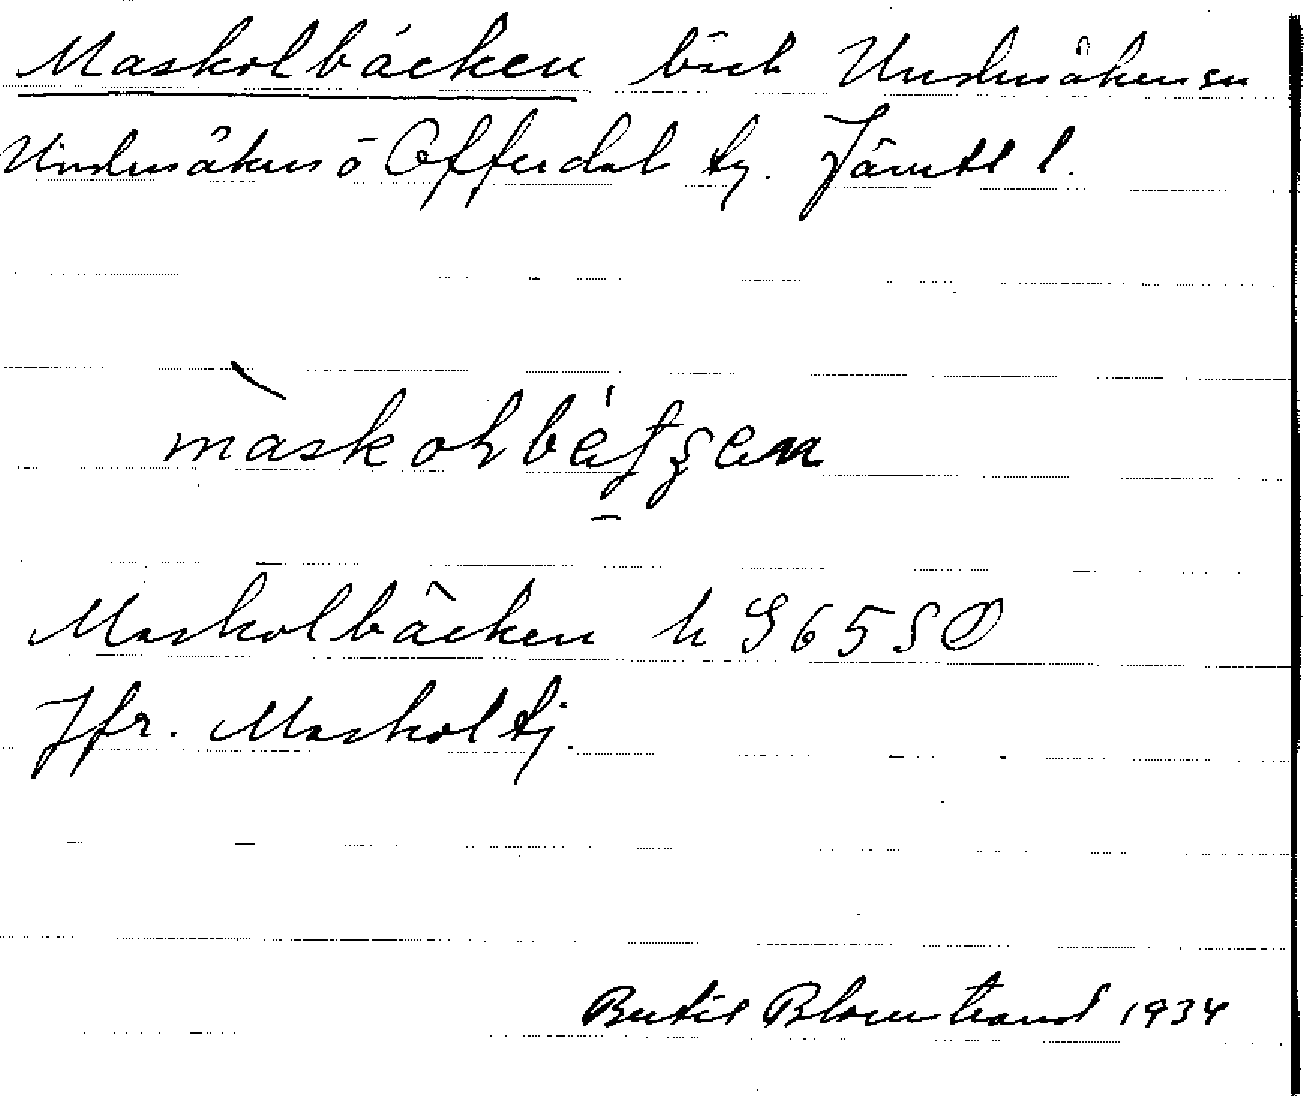 Maskolbäcken bäck Undersåkers sn
Undersåkers o Offerdals tg. Jämtl l.
maskolbätsen
Maskolbäcken k G65SO
Jfr. Maskoltj.
Bertil Blomstrand 1934